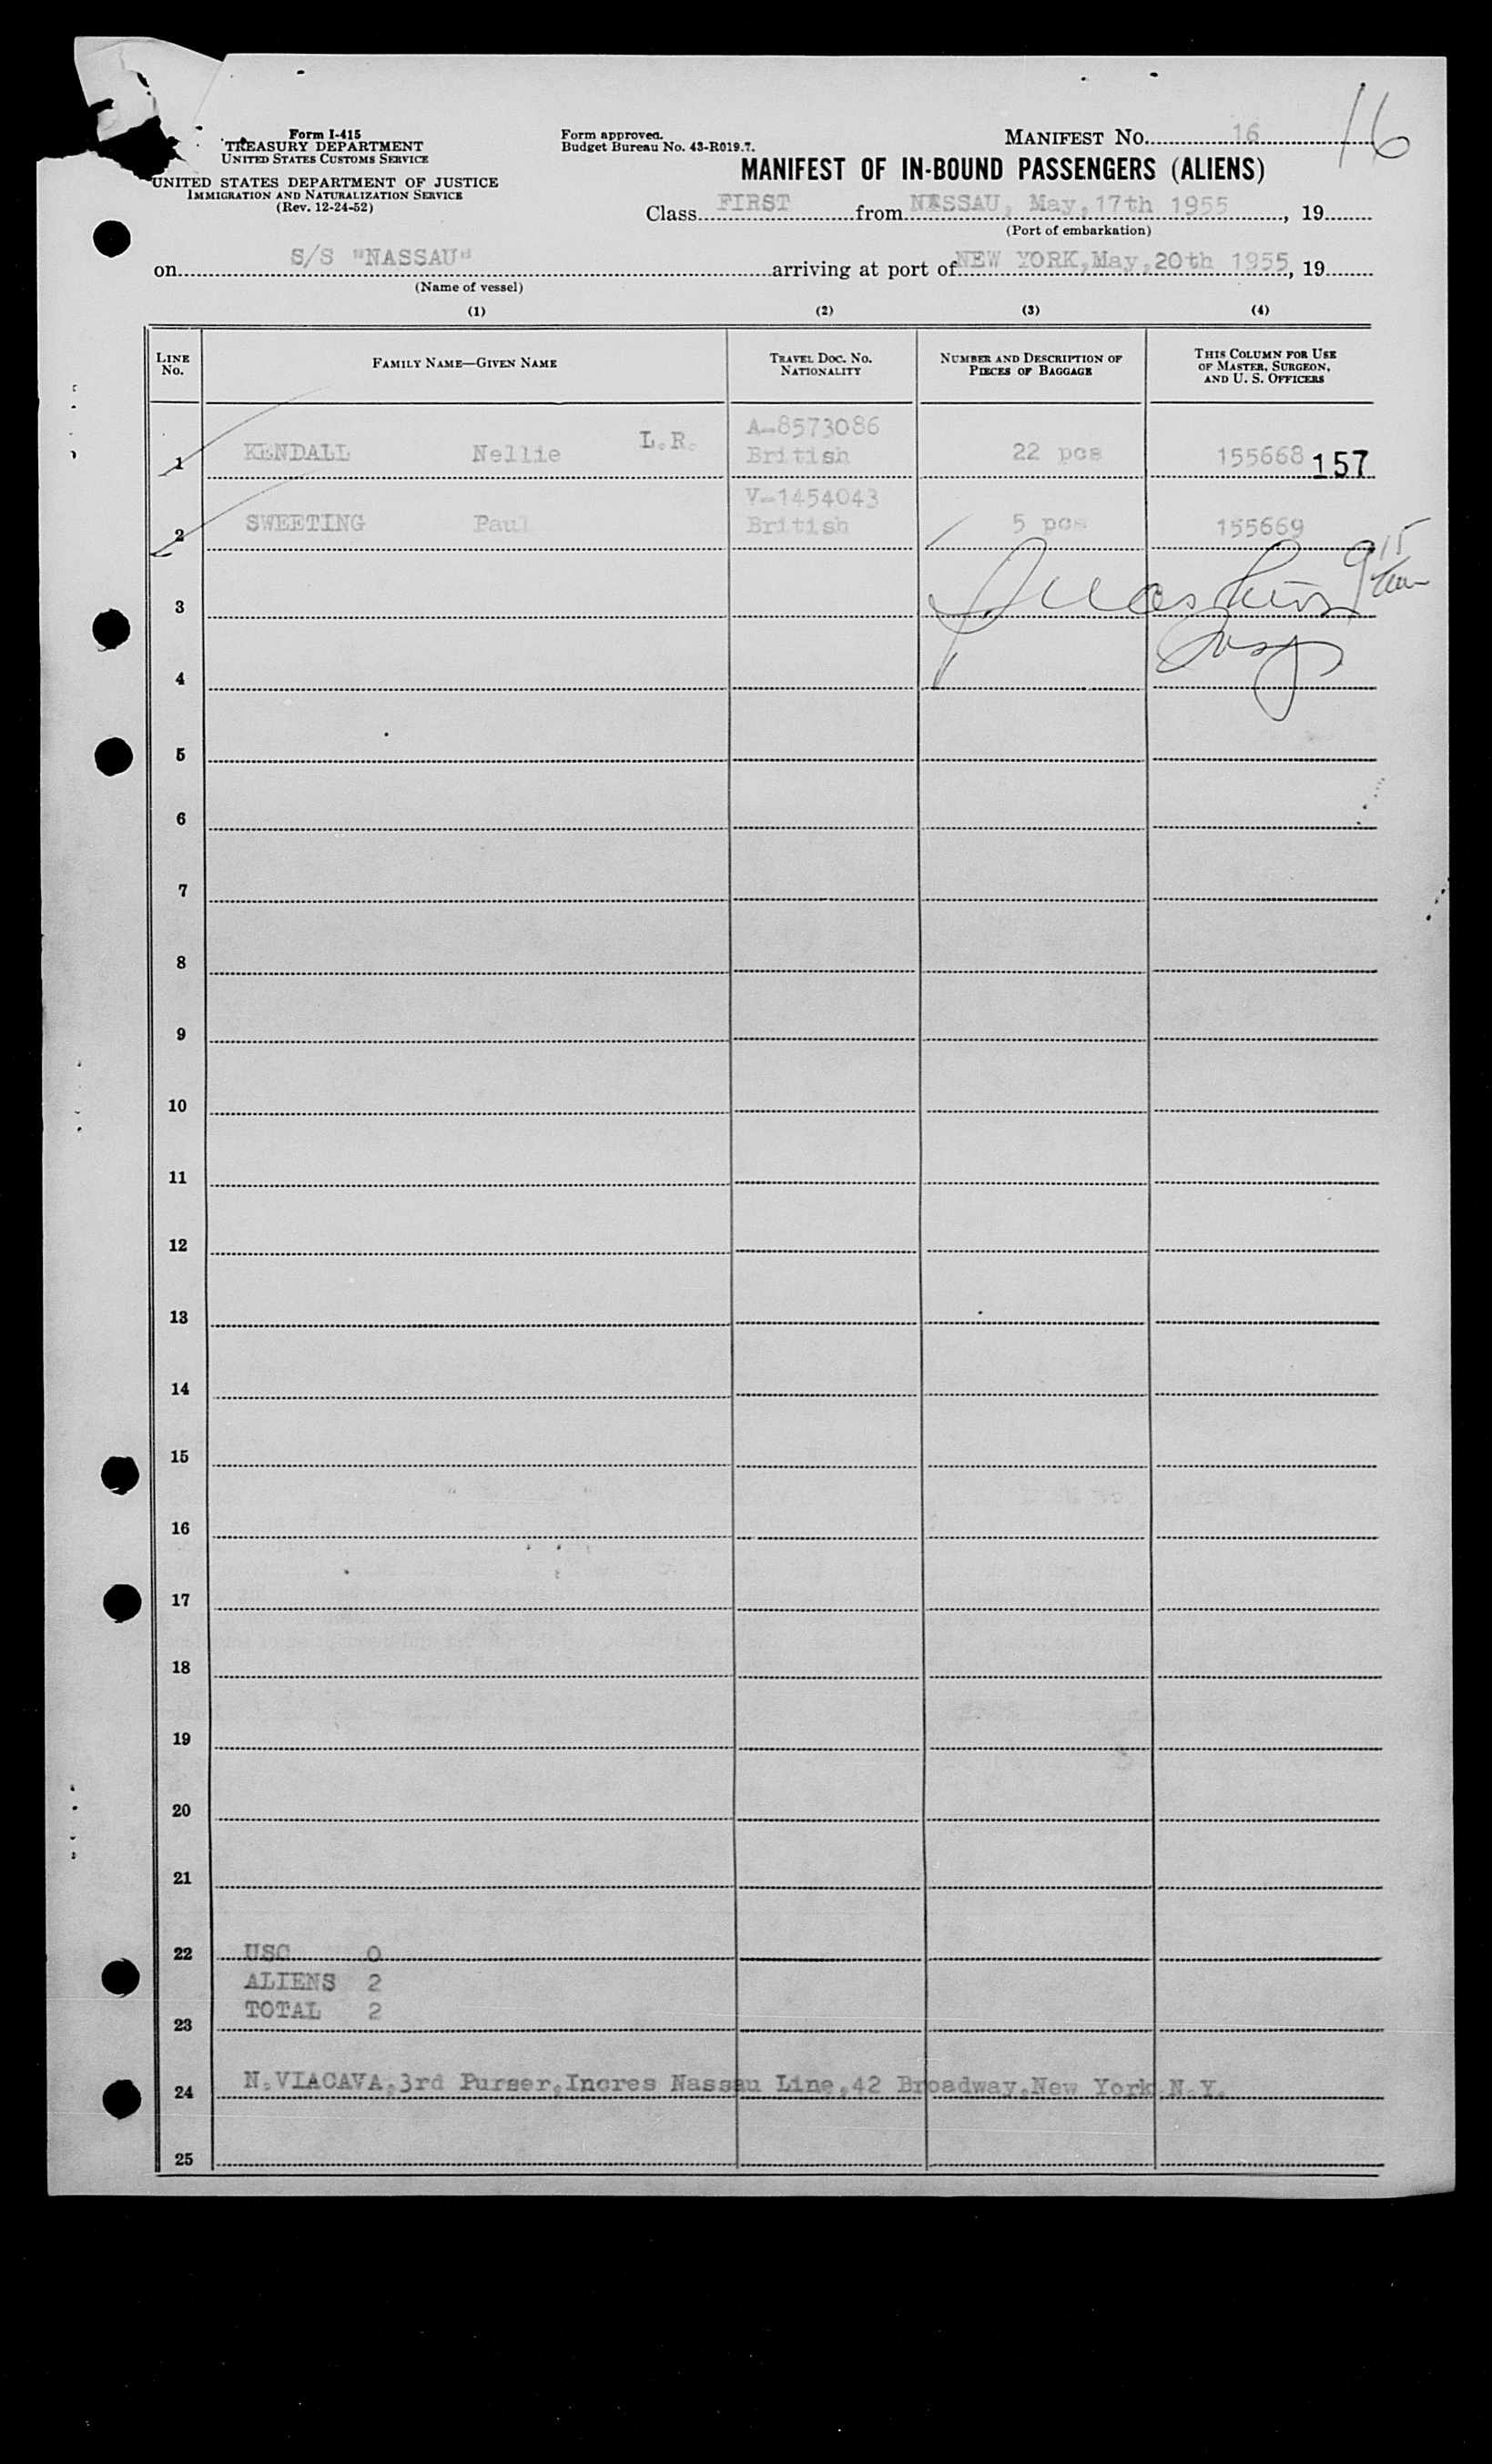 Form I-415
TREASURY DEPARTMENT
UNITED STATES CUSTOMS SERVICE
UNITED STATES DEPARTMENT OF JUSTICE
IMMIGRATION AND NATURALIZATION SERVICE
(Rev. 12-24-52)
Form approved.
Budget Bureau No. 43-R019.7.
MANIFEST NO. 16
16
MANIFEST OF IN-BOUND PASSENGERS (ALIENS)
Class FIRST from NASSAU, May, 17th 1955, 19
(Port of embarkation)
on S/S "NASSAU" arriving at port of NEW YORK, May, 20th 1955, 19
(Name of vessel)
(1) (2) (3) (4)
LINE NO. FAMILY NAME—GIVEN NAME TRAVEL DOC. NO. NATIONALITY NUMBER AND DESCRIPTION OF PIECES OF BAGGAGE THIS COLUMN FOR USE OF MASTER, SURGEON, AND U. S. OFFICERS
A-8573086
1 KENDALL Nellie L.R. British 22 pcs 155668 157
V-1454043
2 SWEETING Paul British 5 pcs 155669
915
3
Insp
4
5
6
7
8
9
10
11
12
13
14
15
16
17
18
19
20
21
22 USC 0
ALIENS 2
TOTAL 2
23
24 N.VIACAVA,3rd Purser,Incres Nassau Line,42 Broadway,New York N.Y.
25